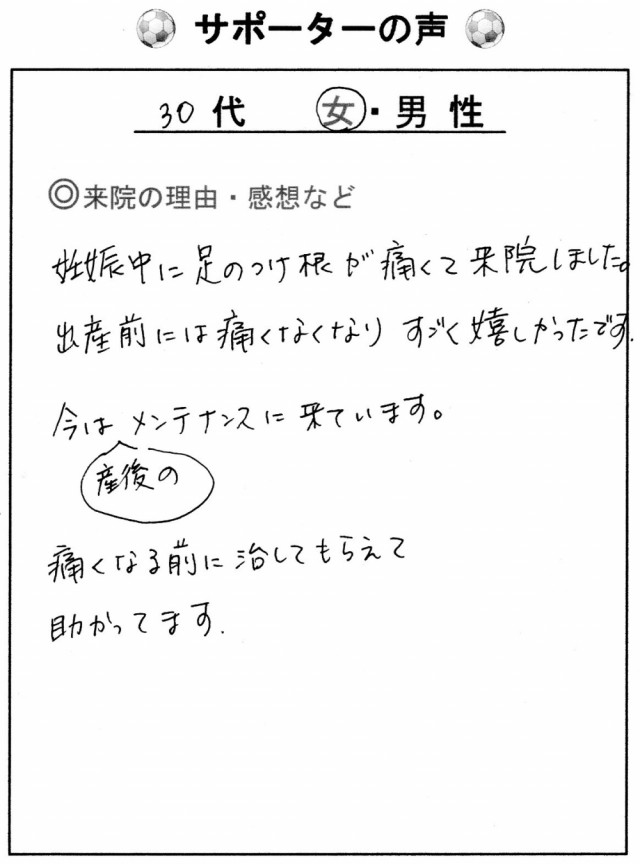 サポーターの声
30代 女・男性
◎来院の理由・感想など
妊娠中に足のつけ根が痛くて来院しました。
出産前には痛くなくなりすごく嬉しかったです.
今はメンテナンスに来ています。
産後の
痛くなる前に治してもらえて
助かってます.